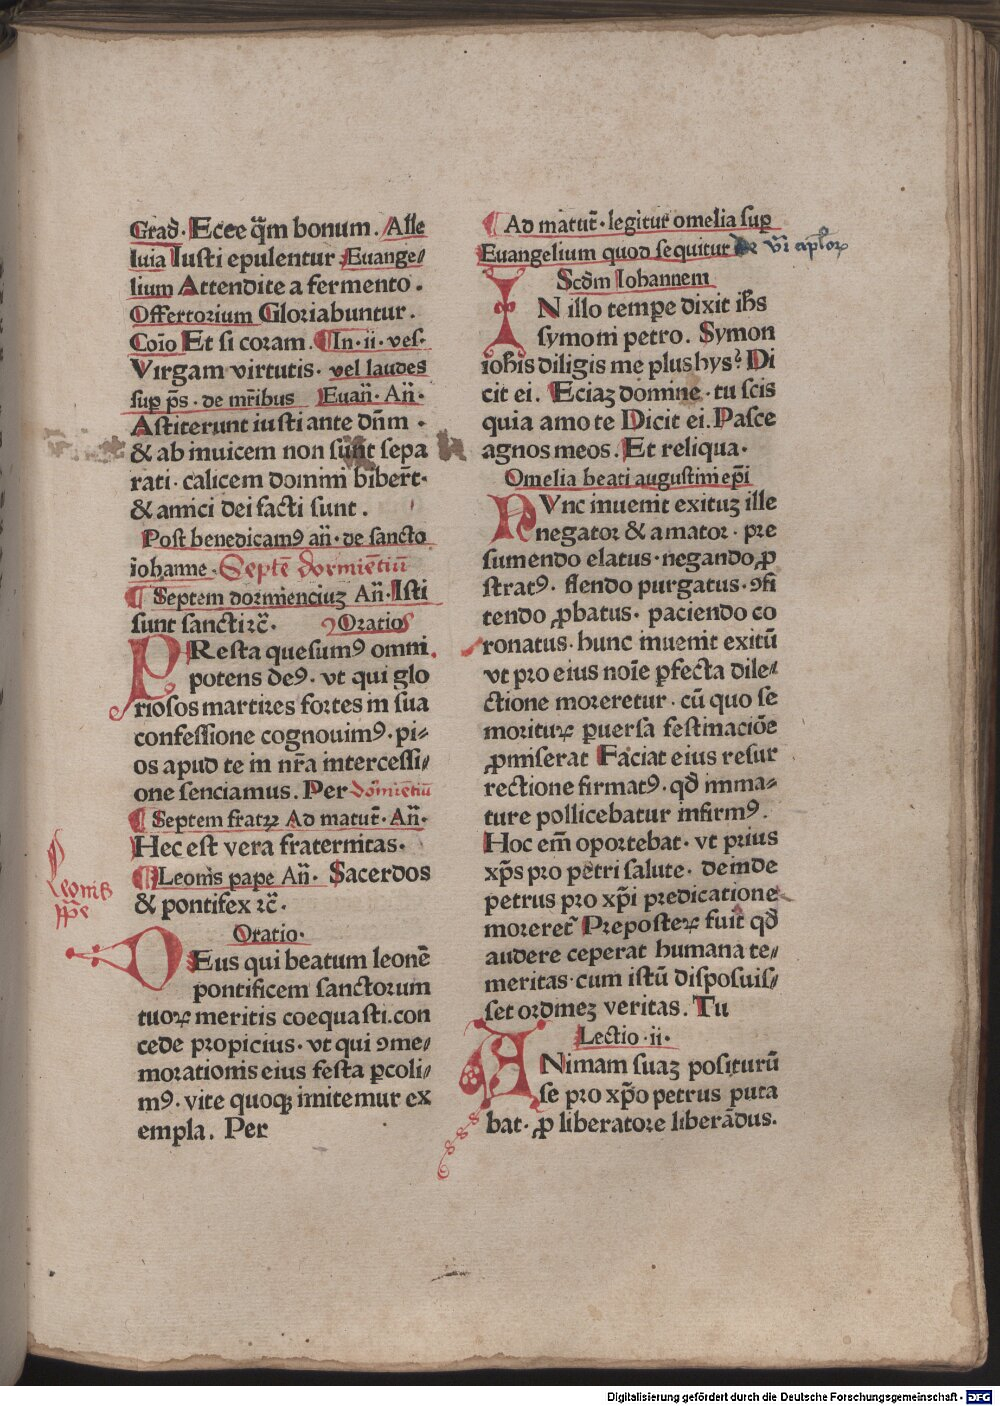 Grad̉. Ecce q̃m bonum. Alle
luia Iusti epulentur Euange⸗
lium Attendite a fermento .
Offertorium Gloriabuntur.
Coı̄o Et si coram. ¶In·ii·ves·
Virgam virtutis· vel laudes
sup p̄s · de mr̄ibus Euan̄· An̄·
Astiterunt iusti ante dn̄m ·
& ab inuicem non sunt sepa
rati· calicem domini biber̄t·
& amici dei facti sunt .
Post benedicamꝰ an̄· de sancto
iohanne · Septē dormiētiū
¶ Septem dormienciuʒ An̄· Isti
sunt sancti ⁊c̄· Oratio
PResta quesumꝰ omni
potens deꝰ· vt qui glo
riosos martires fortes in sua
confessione cognouimꝰ· pi⸗
os apud te in nr̄a intercessi⸗
one senciamus. Per dormiētiū
¶ Septem fratꝝ Ad matut̄· An̄·
Hec est vera fraternitas·
¶ Leonis pape An̄· Sacerdos
& pontifex ⁊c̄·
Leonis
ppe
Oratio·
DEus qui beatum leonē
pontificem sanctorum
tuoꝝ meritis coequasti.con
cede propicius· vt qui ꝯme⸗
morationis eius festa ꝑcoli⸗
mꝰ· vite quoqꝫ imitemur ex
empla. Per
¶ Ad matut̄· legitur omelia sup̄
Euangelium quod sequitur de vı̄ apl̄oꝝ
Scd̄m Iohannem
IN illo tempe dixit ih̄s
symoni petro. Symon
ioh̄is diligis me plus hys? Di
cit ei. Eciaʒ domine · tu scis
quia amo te Dicit ei. Pasce
agnos meos. Et reliqua·
Omelia beati augustini ep̄i
NVnc inuenit exituʒ ille
negator & amator · pre
sumendo elatus· negando ꝓ
stratꝰ· flendo purgatus· ꝯfi
tendo ꝓbatus· paciendo co
ronatus· hunc inuenit exitū
vt pro eius noı̄e ꝑfecta dile⸗
ctione moreretur · cū quo se
morituꝝ ꝑuersa festinaciōe
ꝓmiserat Faciat eius resur
rectione firmatꝰ· qd̄ imma⸗
ture pollicebatur infirmꝰ.
Hoc em̄ oportebat· vt prius
xp̄s pro petri salute· deinde
petrus pro xp̄i predicatione
moreret̄ Preposteꝝ fuit qd̄
audere ceperat humana te⸗
meritas· cum istū disposuis⸗
set ordineʒ veritas. Tu
Lectio ·ii·
ANimam suaʒ positurū
se pro xp̄o petrus puta
bat· ꝓ liberatore liberādus.
Digitalisierung gefördert durch die Deutsche Forschungsgemeinschaft - DFG